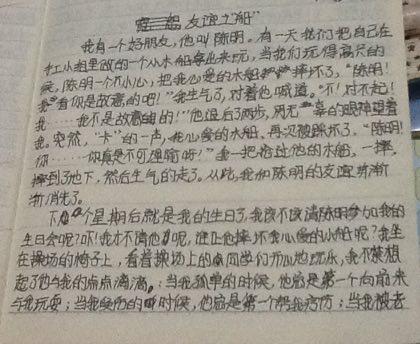 友谊之船”
我有一个好朋友，他叫陈明。有一天我们把自己在
红小组里做的一个小水船拿出来玩，当我们玩得高兴的
候，陈明一个不小心，把我心爱的水船摔坏了，“陈明！
我看你是故意的吧！”我生气了，对着他喊道。“不！对不起！
我……我不是故意的的！”他退后了两步，用无辜的眼神望着
我。突然，“卡”的一声，我心爱的水船，再次被踩坏了。“陈明！
你……你真是不可理喻呀！”我一把抢过他的水船，一摔，
摔到了地下，然后生气的走了。从此，我和陈明的友谊渐渐
渐消失了。
下个星期后就是我的生日了，我该不该请陈明参加我的
生日会呢？吓！我才不请他呢，谁让他摔坏我心爱的小船呢？我坐
在操场的椅子上，看着操场上的同学们开心地玩乐，我不禁想
起了他与我的点点滴滴：当我孤单的时候，他总是第一个向前来
与我玩耍；当我受伤的时候，他总是第一个帮我疗伤；当我被老